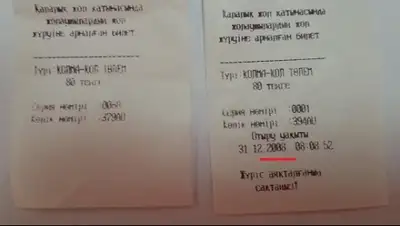 Қаралық жол қатынасында
жолаушылардың жол
жүруіне арналған билет
Түрі ҚОЛМА-ҚОЛ ТӨЛЕМ
80 теңге
Серия нөмірі :0058
Көлік нөмірі: :379АU
Қаралық жол қатынасында
жолаушылардың жол
жүруіне арналған билет
Түрі ҚОЛМА-ҚОЛ ТӨЛЕМ
80 теңге
Серия нөмірі :0001
Көлік нөмірі: :394АU
Отыру уақыты
31.12.2008 08:08:52
Жүріс аяқталғанша
сақтаңыз!